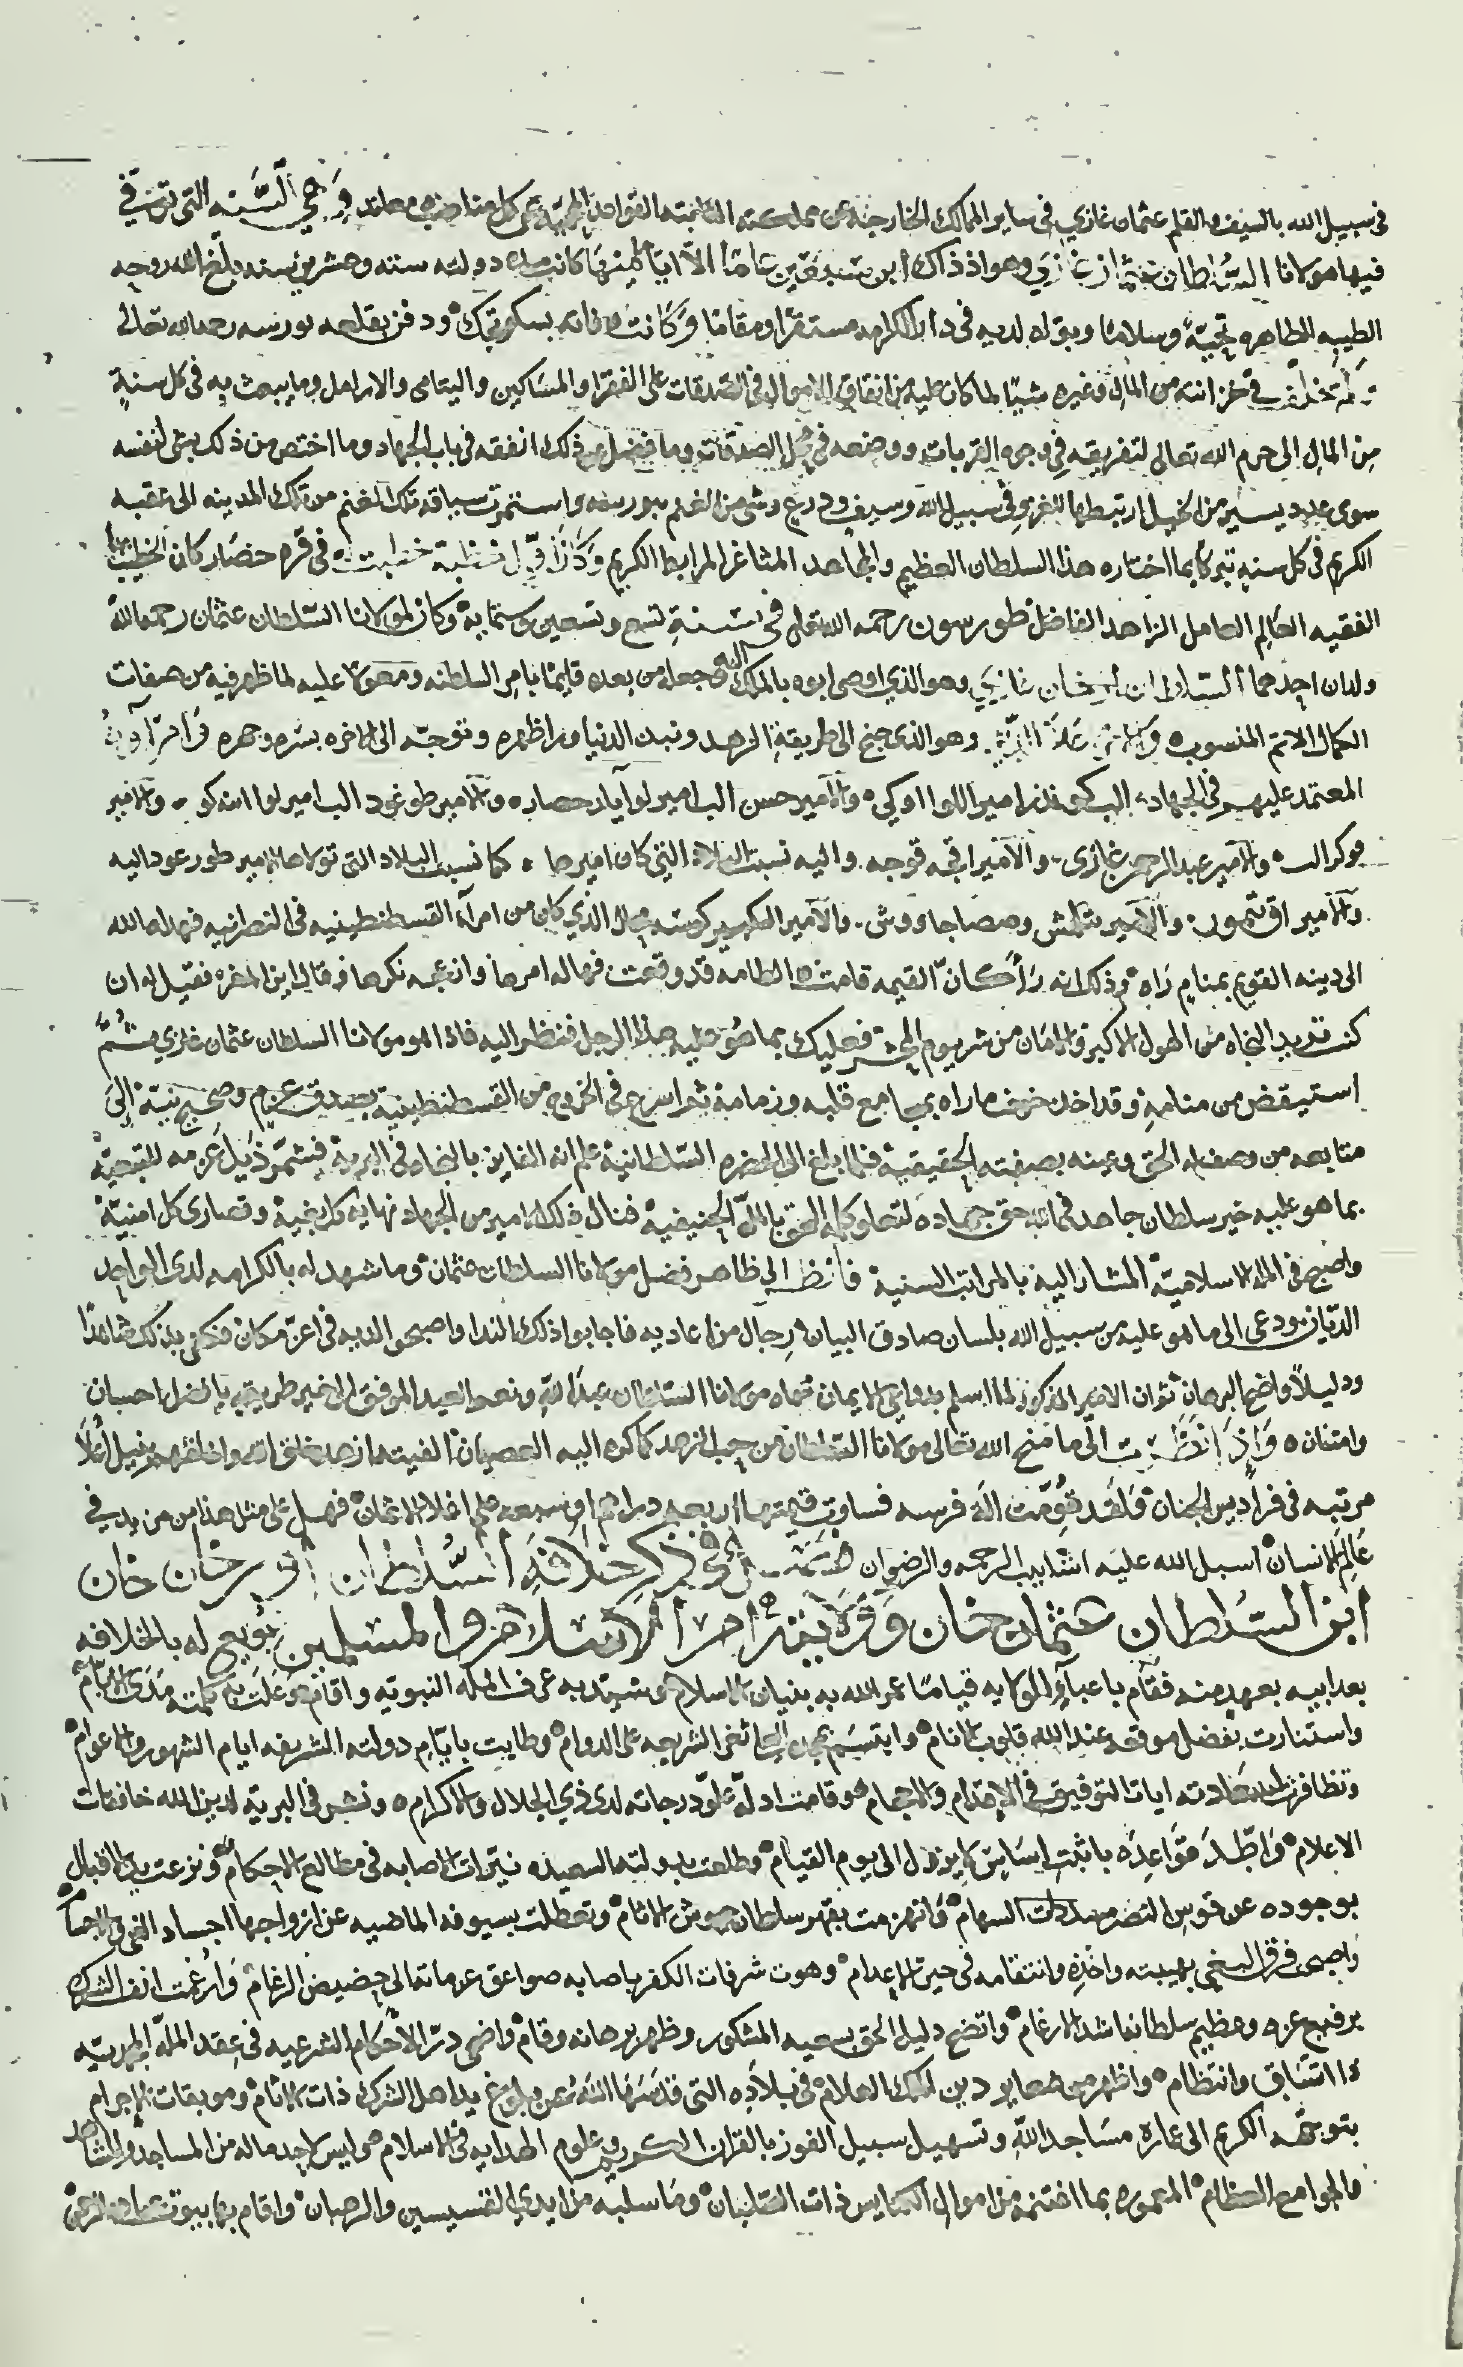 في سبيل الله بالسيف والقلم عثمان غازي في ساير الممالك الخارجة عن مملكته الثابتة القواعد وهي السنه التي توفي
فيها مولانا السلطان عثمان غازي وهو اذ ذاك ابن سبعين عاما الا اياما كانت دولته ستة وعشرين سنه بلغ الله روحه
الطيبه الطاهره تحية وسلاما وبوّاه لديه في دار الكرامه مستقرا ومقاما وكانت وفاته بسكوتجك ودفن بقلعه بورسه رحمه الله تعالى
ولم يخلف في خزانته من المال وغيره شيا لما كان عليه من انفاق الاموال في الصدقات على الفقرا والمساكين واليتامى والارامل وما يبعث به في كل سنة
من المال الى حرم الله تعالى لتفريقه في وجوه القربات ووضعه في محل الصدقات وما فضل عن ذلك انفقه في باب الجهاد وما اختص من ذلك بشي لنفسه
سوى عدد يسير من الخيل ارتبطها للغزو في سبيل الله وسيف ودرع وشي من الغنم ببورسه واستمرت ساقة تلك الغنم من تلك المدينه الى عقبه
الكريم في كل سنة تبركا بما اختاره هذا السلطان العظيم والمجاهد المثاغر المرابط الكريم وكان اول خطبة خطبت له في قره حصار كان الخطيب بها
الفقيه العالم العامل الزاهد الفاضل طورسون رحمه الله تعالى في سنة تسع وتسعين وستمايه وكان لمولانا السلطان عثمان رحمه الله
ولدان احدهما السلطان اورخان غازي وهو الذي اوصى ابوه بالملك اليه وجعله من بعده قايما بامر السلطنه ومعولا عليه لما ظهر فيه من صفات
الكمال الاتم المنسوبه والاخر علا الدين وهو الذي جنح الى طريقة الزهد ونبذ الدنيا ورا ظهره وتوجه الى الاخره بسره وجهره وامراوه
المعتمد عليهم في الجهاد الب كوندز امير اللوا اوكي والامير حسن الب امير لوا يار حصار والامير طوغود الب امير لوا اينه كو والامير
بوكر الب والامير عبد الرحمن غازي والامير اقجه قوجه واليه نسبت البلاد التي كان اميرها كما نسبت البلاد التي تولاها الامير طورعود اليه
والامير اق تيمور والامير وصصاجاووش والامير الكبير كوسه ميخال الذي كان من امرآء القسطنطينيه في النصرانيه فهداه الله
الى دينه القويم بمنام رَاه وذلك انه رَأى كانّ القيمه قامت والطامه قد وقعت فهاله امرها وازعجه نكرها فقال اين المفر فقيل له ان
كنت تريد النجاه من الهول الاكبر والامان من شر يوم المحشر فعليك بما هو عليه هذا الرجل فنظر اليه فاذا هو مولانا السلطان عثمان غازي ثم
استيقض من منامه وقد اخذ خوف ما راه بمجامع قلبه وزمامه ثم اسرع في الخروج من القسطنطينية بصدق عزم وصحيح نية الى
متابعه من وصف له الحق وعينه بصفته الحقيقية فلما بلغ الى الحضره السلطانية علم انه الفايز بالنجاه في البرية فشمّر ذيل عزمه للتبعية
بما هو عليه خير سلطان جاهد في الله حق جهاده لتعلو كلمة الحق بالملة الحنيفية فنال ذلك الامير من الجهاد نهاية كل بغية وقصارى كل امنية
واصبح في المله الاسلامية المشار اليه بالمراتب السنية فانظر الى ظاهر فضل مولانا السلطان عثمان وما شهد له بالكرامه لدى الواحد
الديان نودي الى ما هو عليه من سبيل الله بلسان صادق البيان رجال من اعاديه فاجابوا ذلك الندا واصبحوا لديه في اعز مكان فكفى بذلك شاهدا
ودليلا واضح البرهان ثم ان الامير المذكور لما اسلم بدواعي الايمان سماه مولانا السلطان عبد الله ونعم العبد الموفق الى خير طريقه بافضل احسان
وامتنان واذا نظرت الى ما منح الله تعالى مولانا السلطان من حب الزهد كما كره اليه العصيان الفيته ازهد خلق الله واخلقهم بنيل اعلا
مرتبه في فراديس الجنان ولقد قومت الة فرسه فساوت قيمتها اربعه دراهم او سبعه على اغلا الاثمان فهل على مثل هذا من مزيد في
عالم الانسان اسبل الله عليه اشابيب الرحمه والرضوان في ذكر خلافة السلطان اورخان خان
ابن السلطان عثمان خان وقيامه بامر الاسلام والمسلمين بويع له بالخلافه
بعد ابيه بعهد منه فقام باعبآء الولايه قياما عمر الله به بنيان الاسلام وشيد به غرف المله النبويه واقام وعلت به كلمته مدى الايام
واستنارت بفضل موقعه عند الله قلوب الانام وابتسم ثغر الشريعه على الدوام وطابت بايام دولته الشريفه ايام الشهور والاعوام
وتظافرت لسعادته ايات التوفيق في الاقدام والاحجام وقامت ادلة علو درجاته لدى ذي الجلال والاكرام ونشر في البرية لدين الله خافقات
الاعلام وَاطّد قواعده باثبت اساس لا يزول الى يوم القيام وطلعت بدولته السعيده نيرات الاصابه في مطالع الاحكام ونزعت يد الاقبال
بوجوده عن قوس النصر مسددات السهام وانهزمت بقهر سلطانه جيوش الاثام وتعطلت بسيوفه الماضيه عن ازواجها اجساد الغي في الاجسام
واصبح فرق البغي بهيبته واخذه وانتقامه في حيز الاعدام وهوت شرفات الكفر باصابه صواعق عزماته الى حضيض الرغام وارغمت انف الشرك
برفيع عزه وعظيم سلطانه اشد الارغام واتضح دليل الحق بسعيه المشكور وظهر برهانه وقام واضحى درّ الاحكام الشرعيه في عقد الملة المحمديه
ذا اتساق وانتظام واظهر شعاير دين الملك العلام في بلاده التي قدسها الله عن بلوغ يد اهل الشرك ذات الاثام وموبقات الاجرام
بتوجهه الكريم الى عمارة مساجد الله وتسهيل سبيل الفوز بالقران الكريم وعلوم الهدايه في الاسلام وليس لاحد ما له من المساجد والمشاهد
والجوامع العظام المعموره بما اغتنمه من اموال الكنايس ذات الصلبان وما سلبه من ايدي القسيسين والرهبان واقام بها بيوت